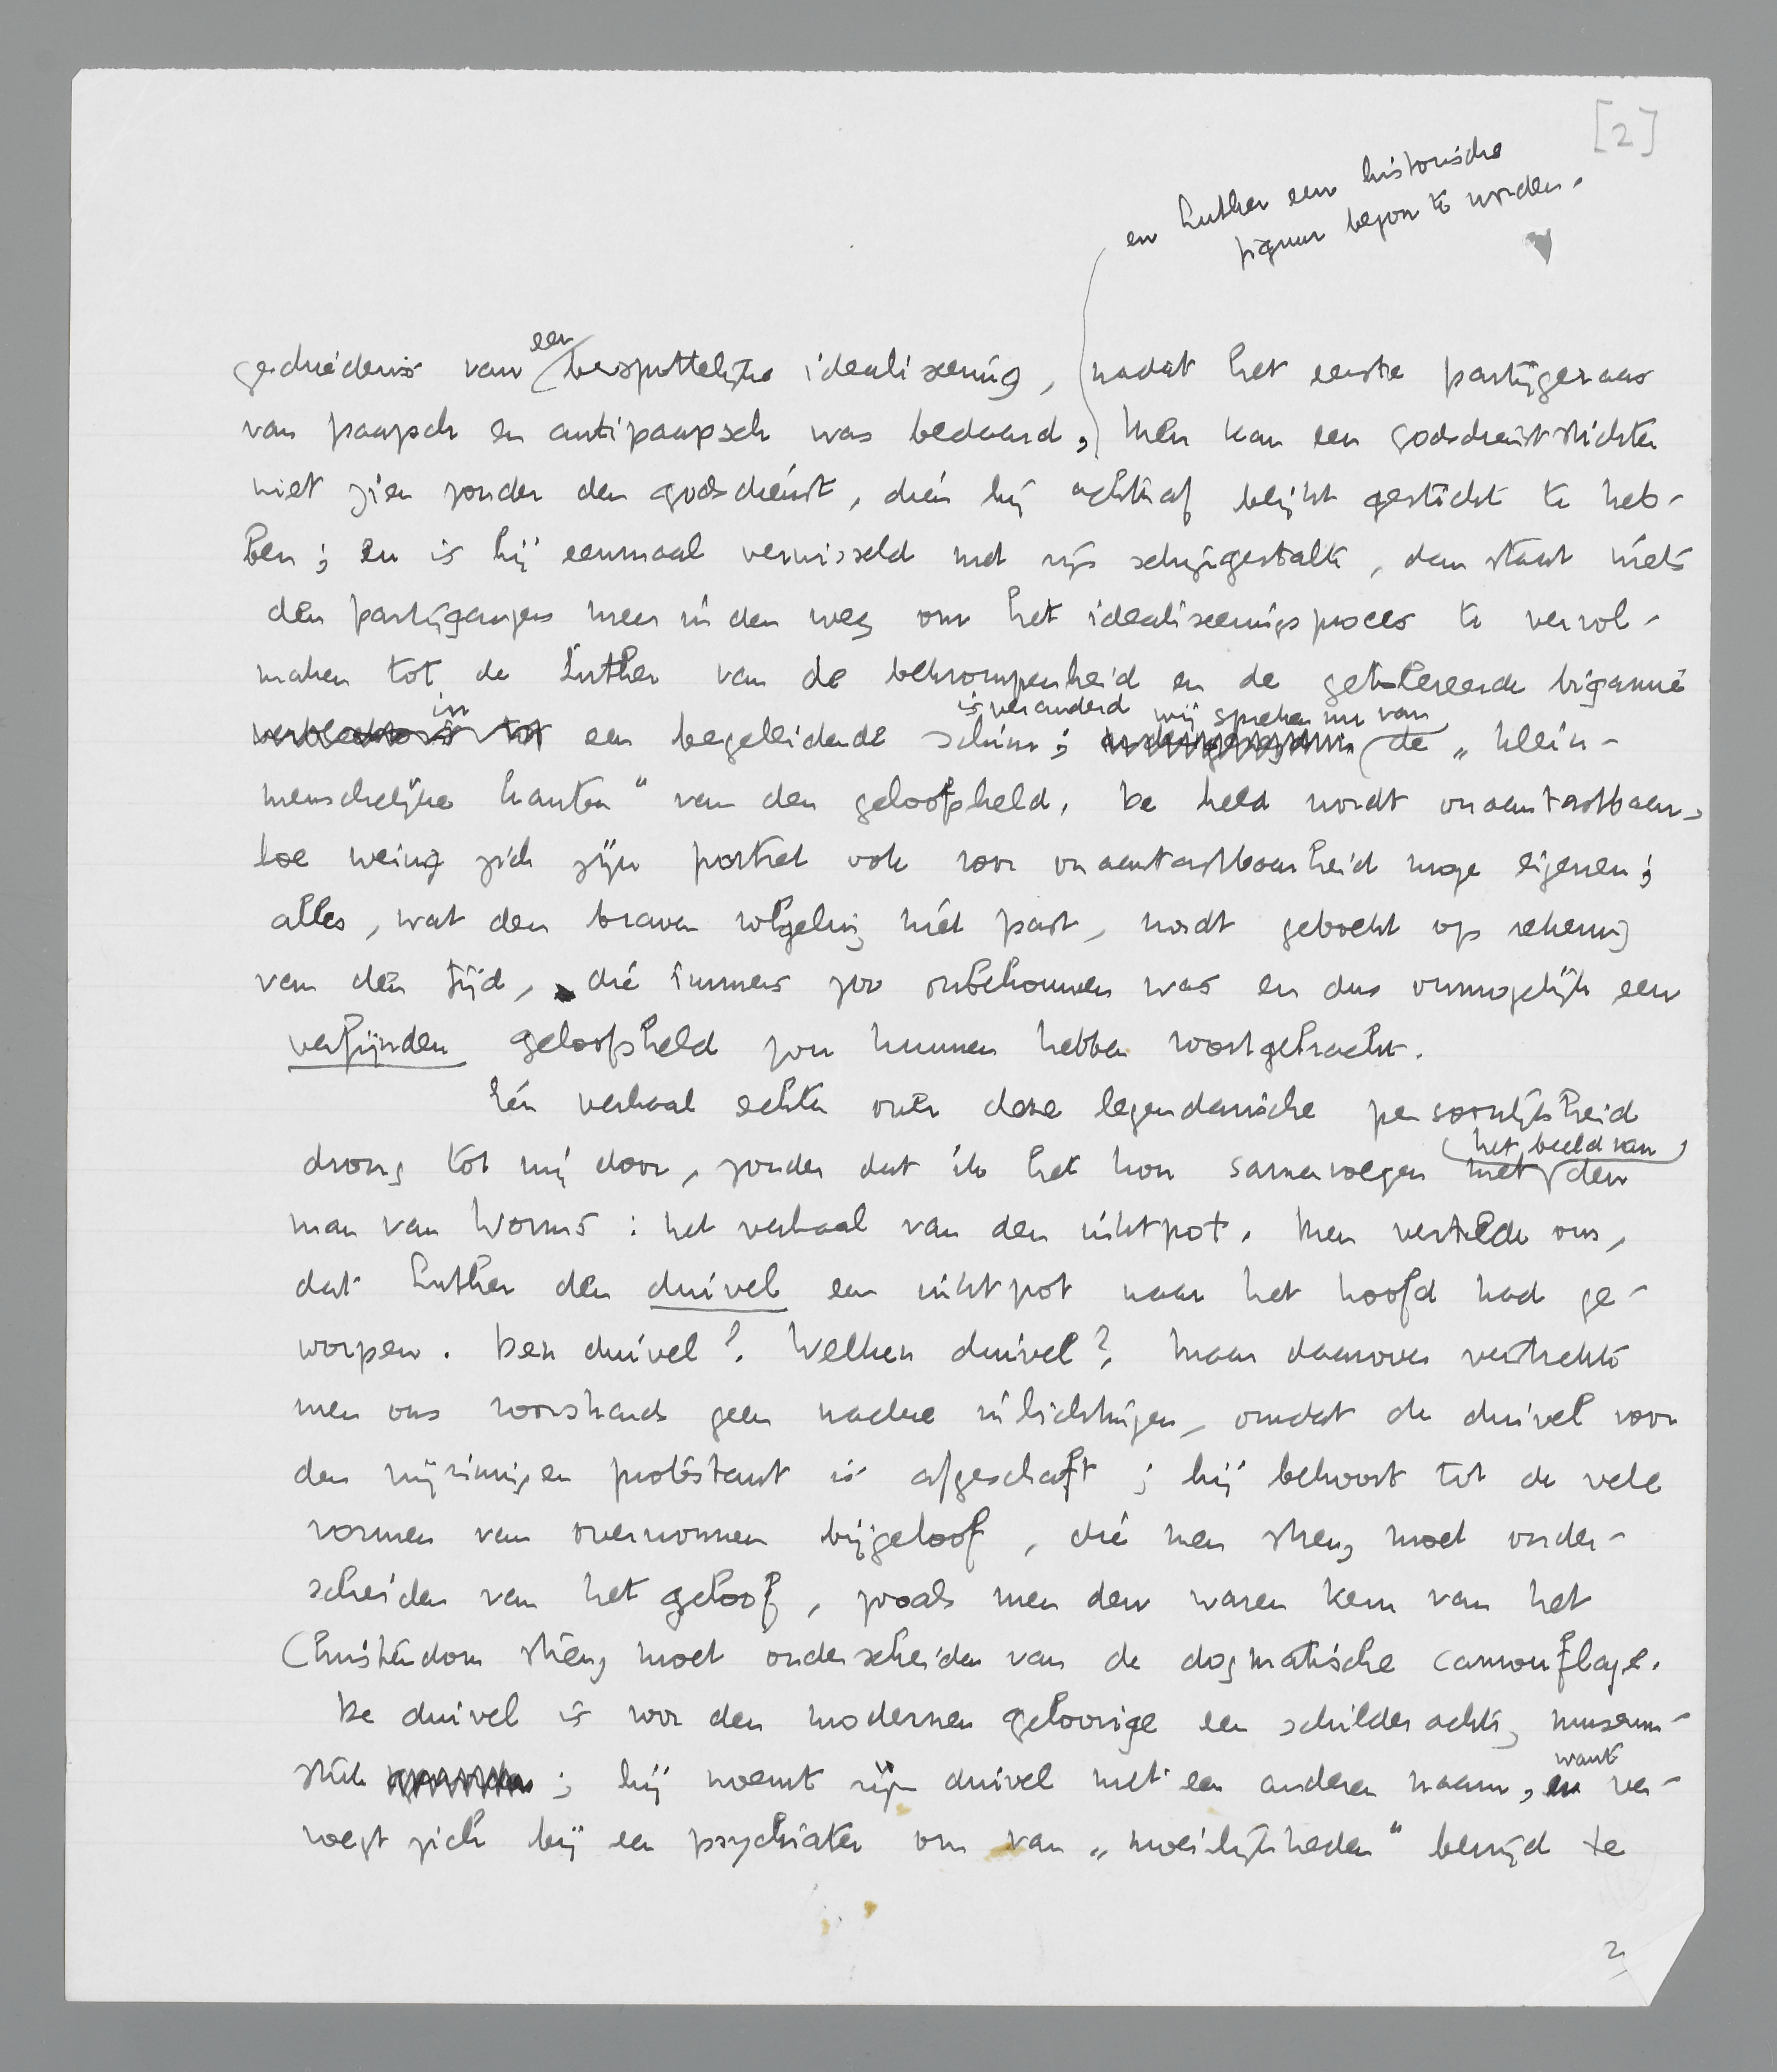 [2]
en Luther een historische
figuur begon te worden.
een
geschiedenis van bespottelijke idealiseering, nadat het eerste partijgeraas
van paapsch en antipaapsch was bedaard, Men kan een godsdienststichter
niet zien zonder den godsdienst, dien hij achteraf blijkt gesticht te heb-
ben; en is hij eenmaal verwisseld met zijn schijngestalte, dan staat niets
den partijgangers meer in den weg om het idealiseeringsproces te vervol-
maken tot de Luther van de bekrompenheid en de getolereerde bigamie
in is veranderd wij spreken nu van
een begeleidende schim; de „klein-
menschelijke kanten" van den geloofsheld. De held wordt onaantastbaar,
hoe weinig zich zijn portret ook voor onaantastbaarheid moge eigenen;
alles, wat den braven volgeling niet past, wordt geboekt op rekening
van den tijd, die immers zoo onbehouwen was en dus onmogelijk een
verfijnden geloofsheld zou kunnen hebben voortgebracht.
Eén verhaal echter over deze legendarische persoonlijkheid
het beeld van
drong tot mij door, zonder dat ik het kon samenvoegen met den
man van Worms: het verhaal van den inktpot. Men vertelde ons,
dat Luther den duivel een inktpot naar het hoofd had ge-
worpen. Den duivel? Welken duivel? Maar daarover verstrekte
men ons voorshands geen nadere inlichtingen, omdat de duivel voor
den vrijzinnigen protestant is afgeschaft; hij behoort tot de vele
vormen van overwonnen bijgeloof, die men streng moet onder-
scheiden van het geloof, zooals men den waren kern van het
Christendom streng moet onderscheiden van de dogmatische camouflage.
De duivel is voor den modernen geloovige een schilderachtig museum-
want
stuk ; hij noemt zijn duivel met een anderen naam, en ver-
voegt zich bij een psychiater om van „moeilijkheden" bevrijd te
2